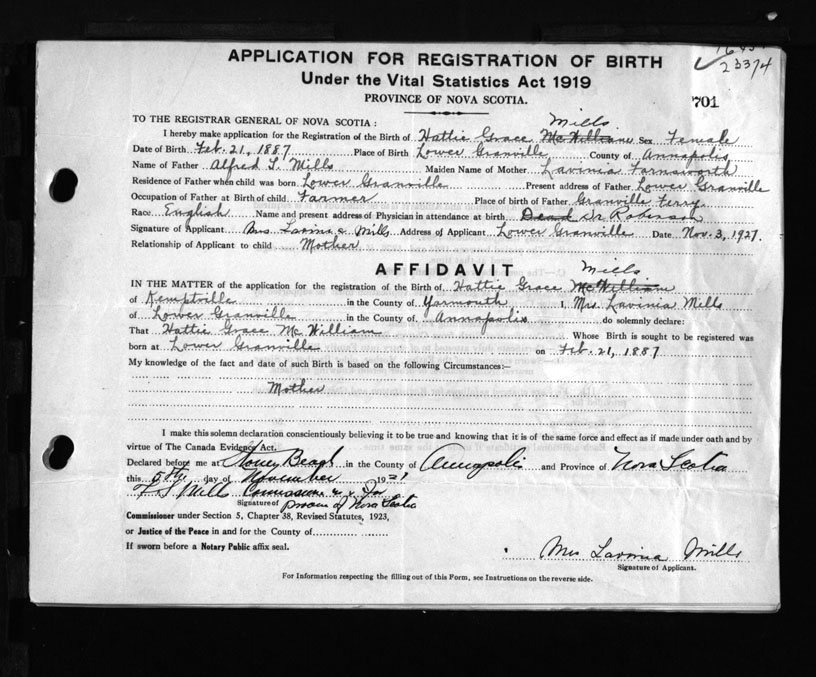 23374
APPLICATION FOR REGISTRATION OF BIRTH
Under the Vital Statistics Act 1919
PROVINCE OF NOVA SCOTIA.
701
TO THE REGISTRAR GENERAL OF NOVA SCOTIA:
Mills
I hereby make application for the Registration of the Birth of Hattie Grace McWilliam Sex Female
Date of Birth Feb. 21, 1887 Place of Birth Lower Granville County of Annapolis
Name of Father Alfred L. Mills Maiden Name of Mother Lavinia Farnsworth
Residence of Father when child was born Lower Granville Present address of Father Lower Granville
Occupation of Father at Birth of child Farmer Place of birth of Father Granville Ferry
Race English Name and present address of Physician in attendance at birth Dead Dr. Robinson
Signature of Applicant Mrs Lavinia Mills Address of Applicant Lower Granville Date Nov. 3, 1927.
Relationship of Applicant to child Mother
AFFIDAVIT
Mills
IN THE MATTER of the application for the registration of the Birth of Hattie Grace McWilliam
of Kemptville in the County of Yarmouth I, Mrs. Lavinia Mills
of Lower Granville in the County of Annapolis do solemnly declare:
That Hattie Grace McWilliam Whose Birth is sought to be registered was
born at Lower Granville on Feb. 21, 1887
My knowledge of the fact and date of such Birth is based on the following Circumstances:—
Mother
I make this solemn declaration conscientiously believing it to be true and knowing that it is of the same force and effect as if made under oath and by
virtue of The Canada Evidence Act.
Declared before me at Beach in the County of Annapolis and Province of Nova Scotia
this 5th day of November 19
Mills
Signature of Province of Nova Scotia
Commissioner under Section 5, Chapter 38, Revised Statutes, 1923,
or Justice of the Peace in and for the County of
If sworn before a Notary Public affix seal.
Mrs Lavinia Mills
Signature of Applicant.
For Information respecting the filling out of this Form, see Instructions on the reverse side.